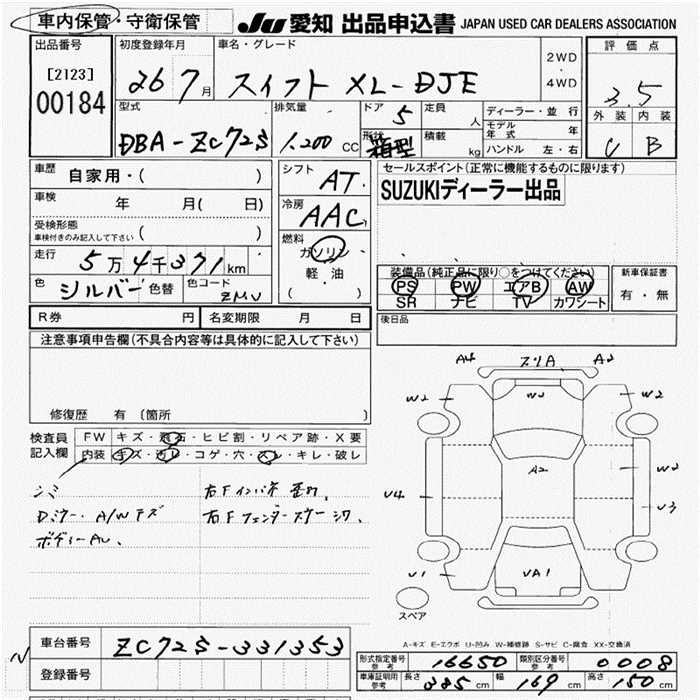 車内保管・守衛保管
JU 愛知 出品申込書 JAPAN USED CAR DEALERS ASSOCIATION
出品番号
[2123]
00184
初度登録年月
26 7月
車名・グレード
スイフト XL-DJE
2WD
・
4WD
評価点
3.5
外装 内装
C B
型式
DBA-ZC72S
排気量
1.200 CC
ドア
5
形状
箱型
定員
人
積載
kg
ディーラー・並行
モデル年式 年
ハンドル 左・右
車歴
自家用・( )
車検
年 月( 日)
受検形態
車検付きのみ記入して下さい ( )
走行
5万4千371km
色
シルバー 色替
色コード
ZMU
シフト
AT
冷房
AAC
燃料
ガソリン
軽油
( )
セールスポイント(正常に機能するものに限ります)
SUZUKIディーラー出品
装備品(純正品に限り○をつけてください)
PS PW エアB AW
SR ナビ TV カワシート
新車保証書
有・無
R券 円
名変期限 月 日
後日品
注意事項申告欄(不具合内容等は具体的に記入して下さい)
修復歴 有 〔箇所
検査員
記入欄
FW キズ・飛石・ヒビ割・リペア跡・X要
内装 キズ・汚レ・コゲ・穴・スレ・キレ・破レ
シミ
Dミラー・A/Wキズ
ボディーAU、
右Fインパネ
右Fフェンダー
A4 A2
W2 W3 W2
A2 W2
U4 U3
U1 UA1
スペア
A-キズ E-エクボ U-凹み W-補修跡 S-サビ C-腐食 XX-交換済
車台番号
ZC72S-331353
登録番号
N
形式指定番号
参考
16650
類別区分番号
参考
0008
車庫証明用
参考
長さ 385cm 幅 169cm 高さ 150cm